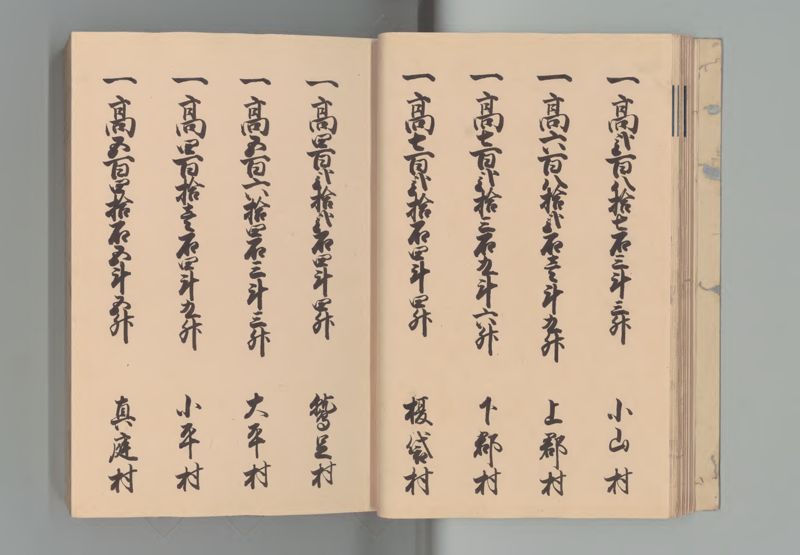 一高弐百八拾七石三斗三升 小山村
一高六百八拾弐石壱斗九升 上郡村
一高七百弐拾三石九斗六升 下郡村
一高七百弐拾石四斗四升 榎袋村
一高四百弐拾弐石四斗四升 鷲足村
一高五百六拾四石三斗三升 大平村
一高四百拾壱石四斗九升 小平村
一高五百四拾石五斗五升 真庭村